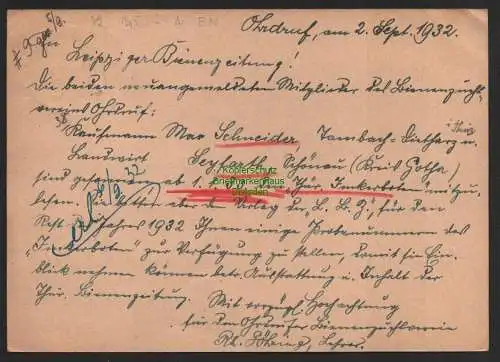 Ohrdruf, am 2. Sept. 1932.
Leipziger Bienenzeitung!
Die beiden neuangemeldeten Mitglieder des Bienenzucht-
vereins Ohrdruf:
Kaufmann Max Schneider, Tambach-Dietharz u.
Landwirt Seyfarth, Schönau (Kreis Gotha)
sind ab 1. Thür. Imkerboten"
Verlag der „L. B. Z.", für den
Rest Jahres 1932 Ihnen einige Probenummern des
„Imkerboten" zur Verfügung zu stellen, damit sie Ein-
blick nehmen können betr. Ausstattung u. Inhalt der
Thür. Bienenzeitung. Mit vorzügl. Hochachtung
für den Ohrdrufer Bienenzuchtverein
Lehrer.
Kölner Kopierschutz
Briefmarkenhaus